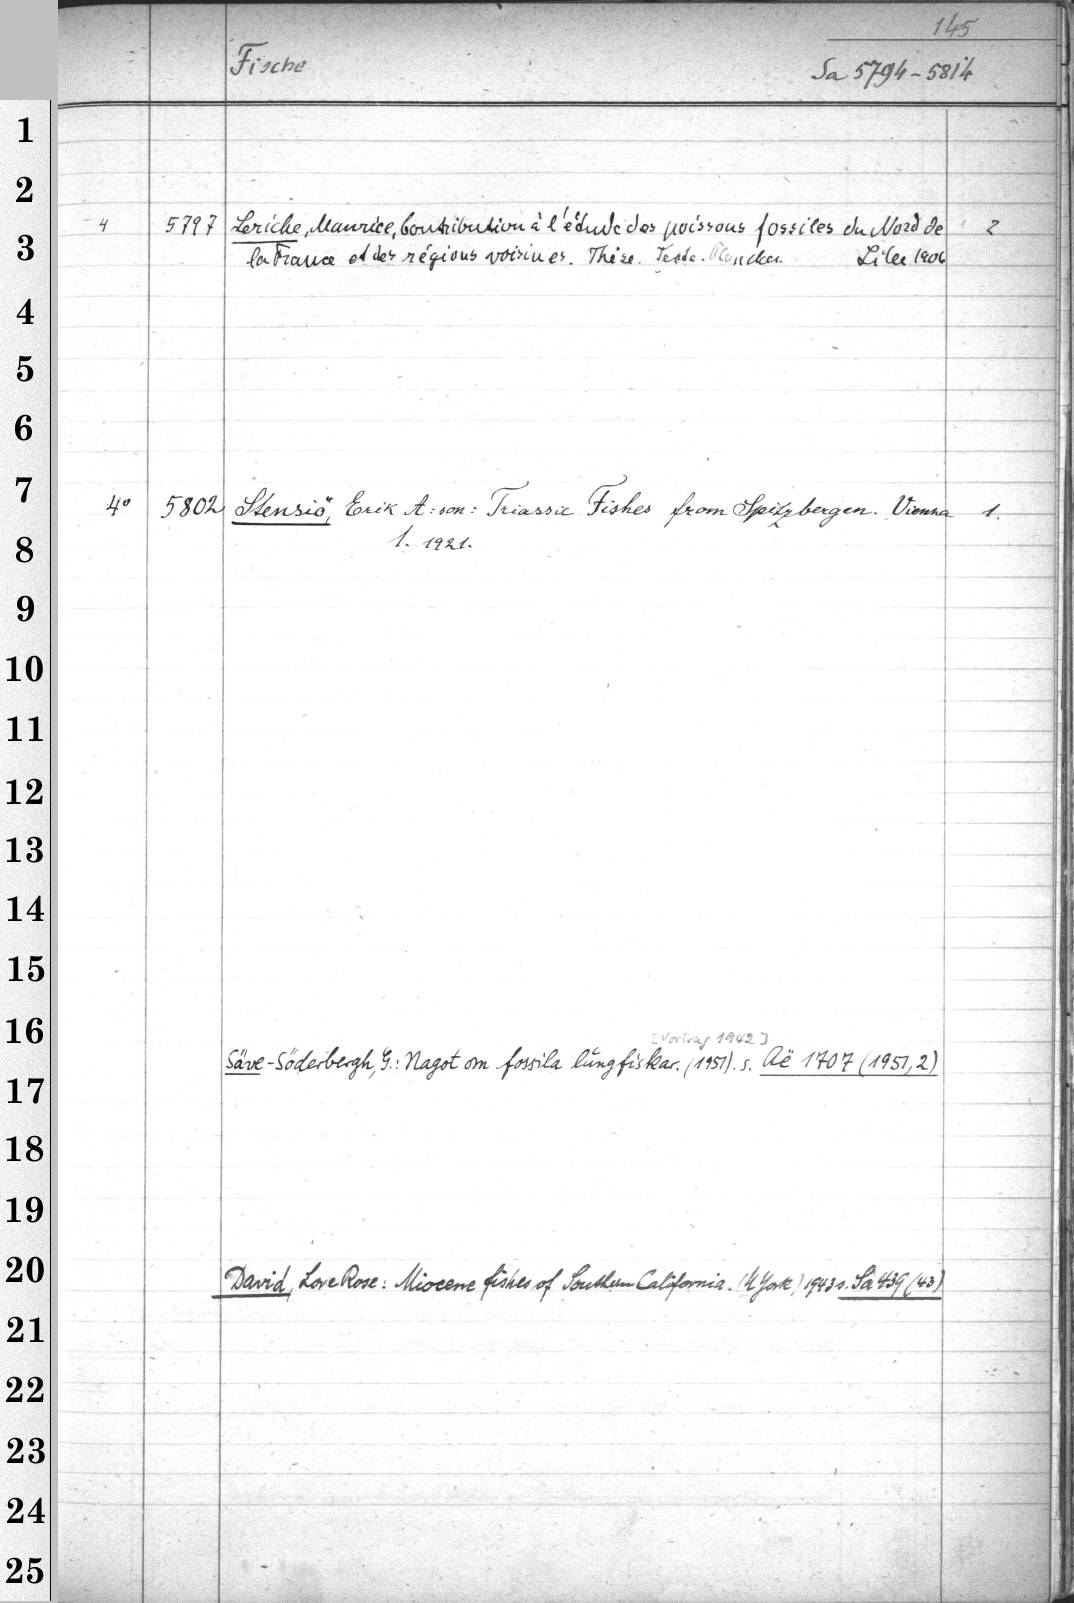 145
Fische
Sa 5794-5814
1
2
4 5797 Leriche, Maurice, Contribution à l'étude des poissons fossiles du Nord de 2
3
la France et des régions voisines. Thèse. Texte. Lille 1906
4
5
6
7
4° 5802 Stensiö, Erik A:son: Triassic Fishes from Spitzbergen. Vienna 1.
1. 1921.
8
9
10
11
12
13
14
15
16
[Vortrag 1942]
Säve-Söderbergh, G.: Nagot om fossila lŭngfiskar. (1951). s. Aë 1707 (1951,2)
17
18
19
20
David, Lore Rose: Miocene fishes of Southern California. (N York) 1943 s. Sa 439 (43)
21
22
23
24
25